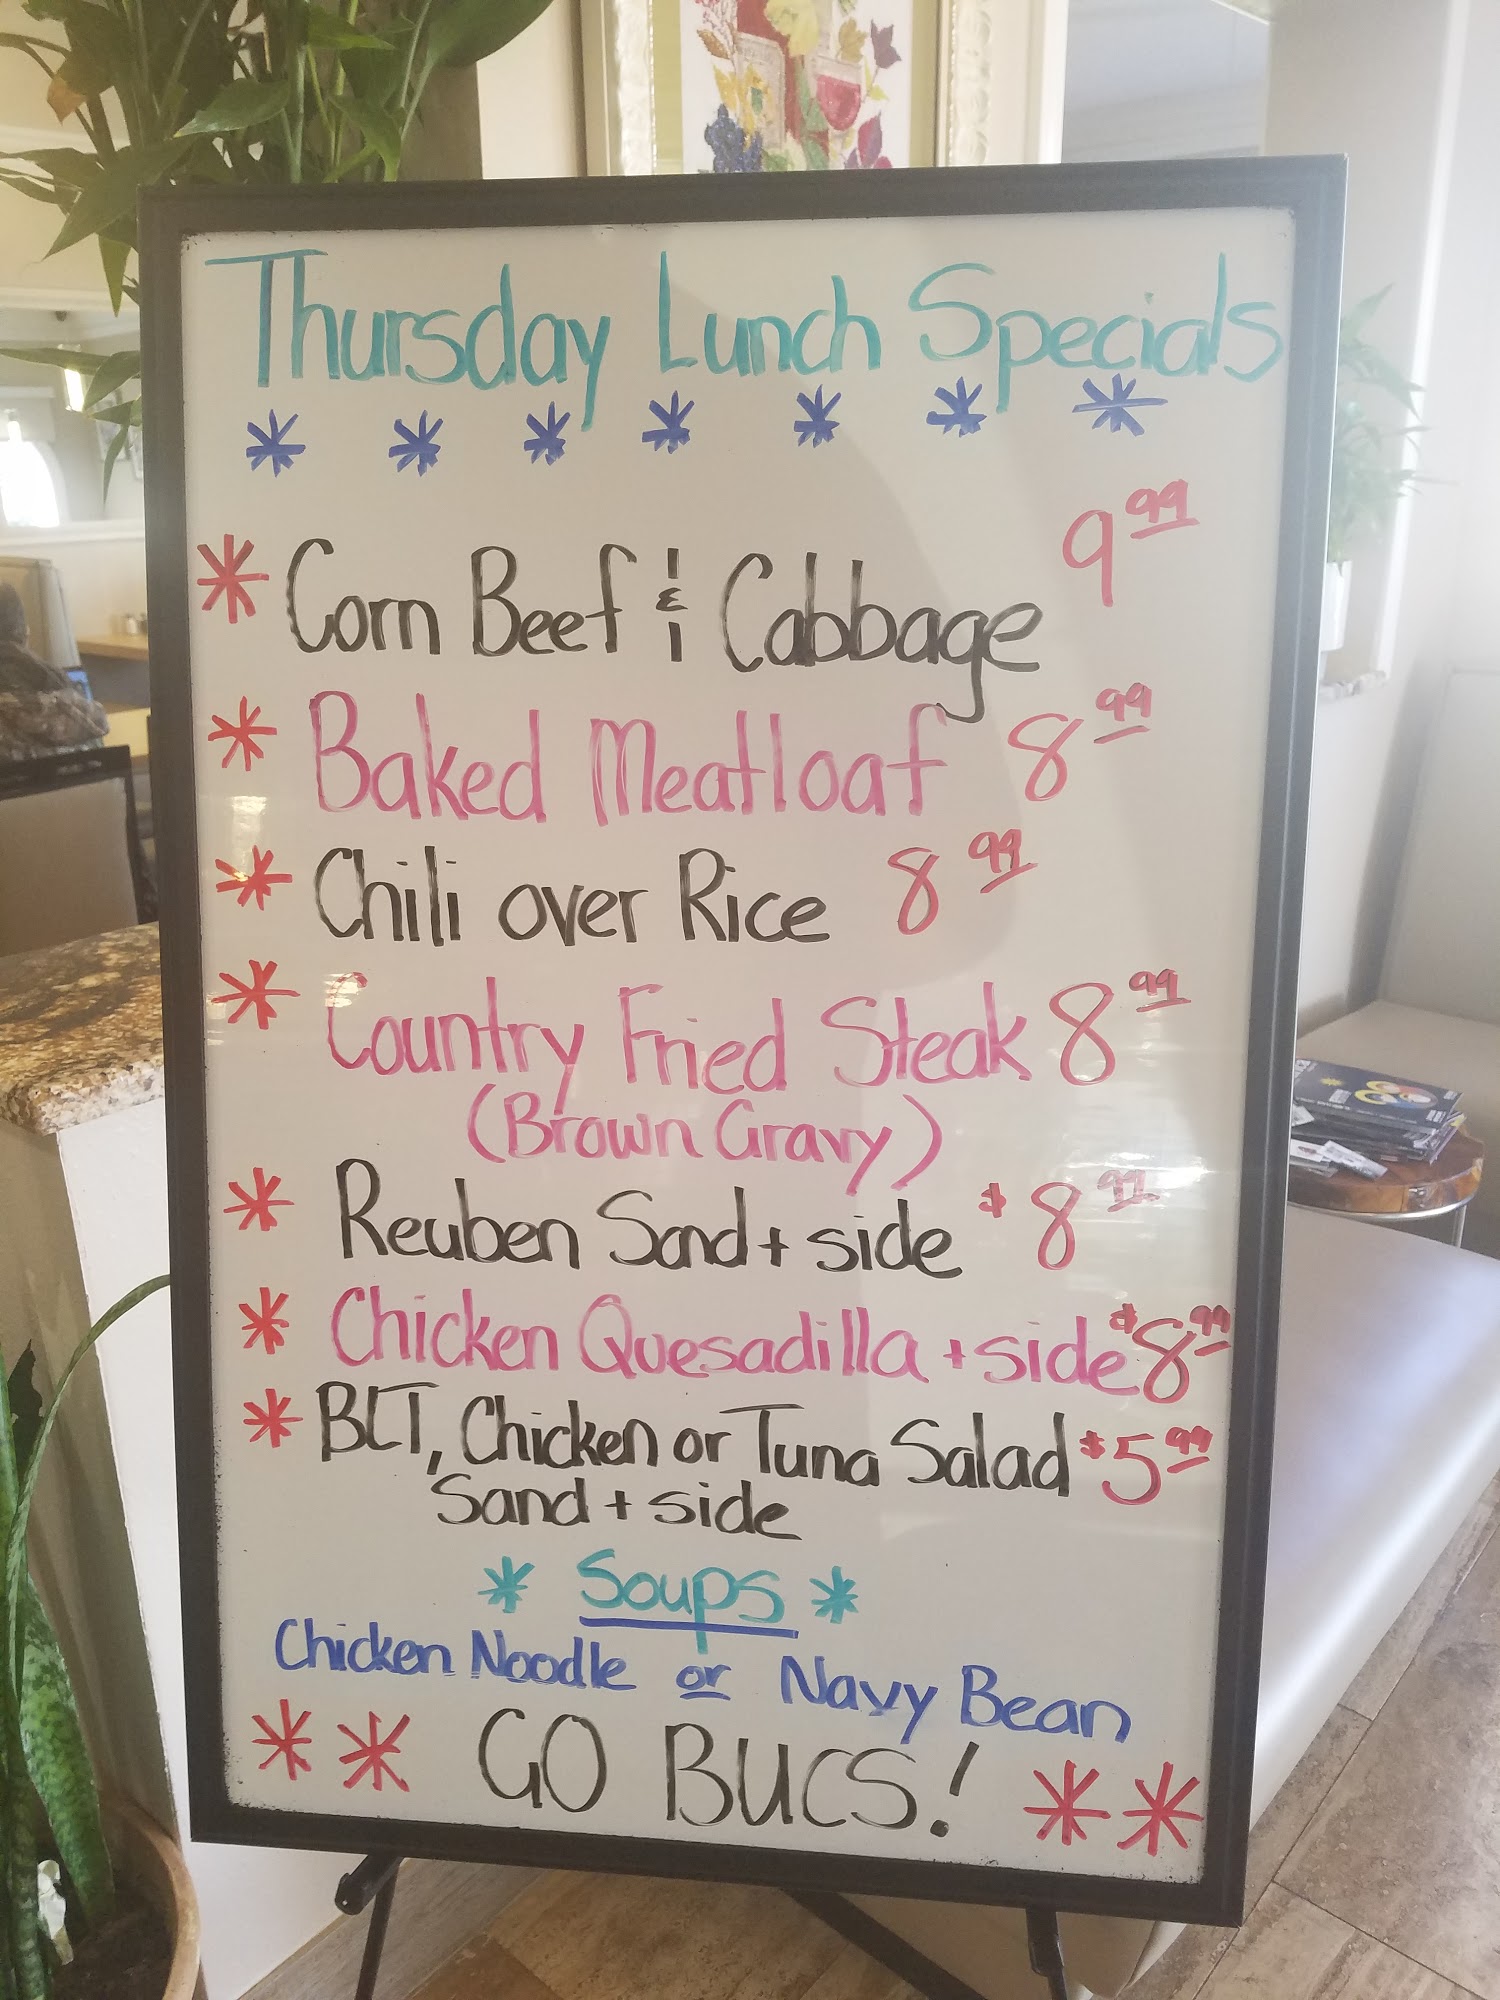 Thursday Lunch Specials
* * * * * * *
* Corn Beef & Cabbage 9.99
* Baked Meatloaf 8.99
* Chili over Rice 8.99
* Country Fried Steak 8.99
(Brown Gravy)
* Reuben Sand + side $8.99
* Chicken Quesadilla + side $8.99
* BLT, Chicken or Tuna Salad $5.99
Sand + side
* Soups *
Chicken Noodle or Navy Bean
** GO BUCS! **